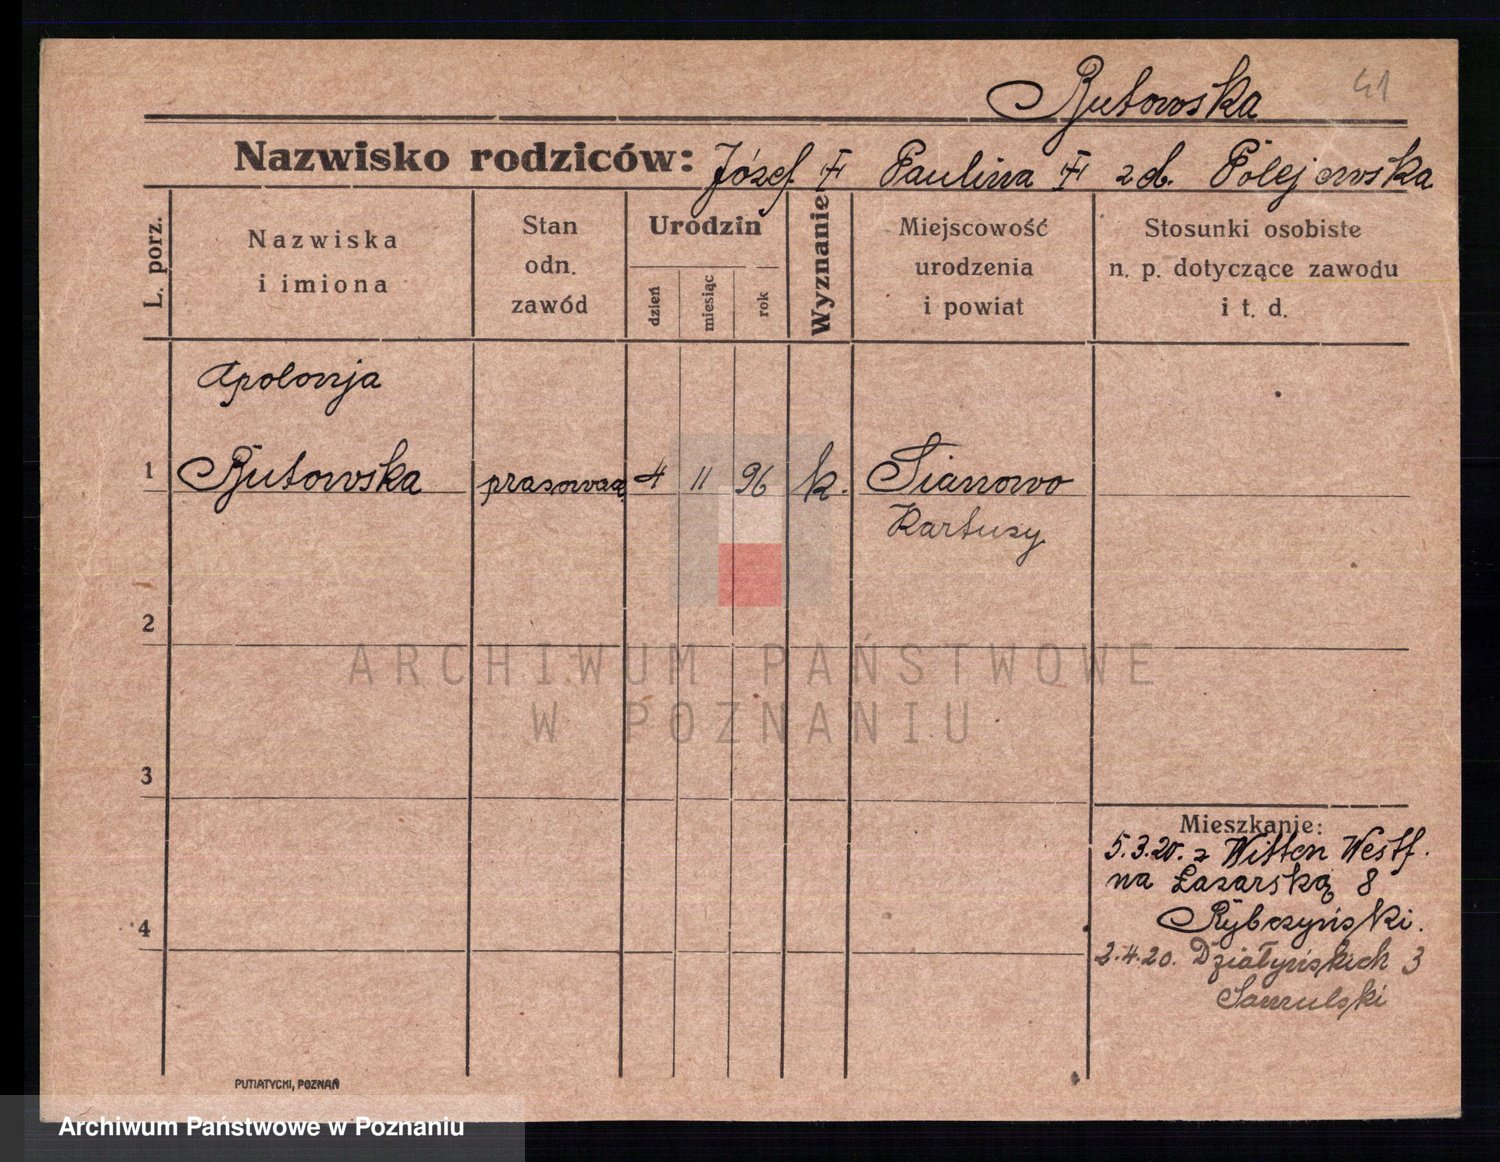 Butowska 41
Nazwisko rodziców: Józef † Paulina † z d. Polejowska
L. porz.
Nazwiska
i imiona
Stan
odn.
zawód
Urodzin
dzień
miesiąc
rok
Wyznanie
Miejscowość
urodzenia
i powiat
Stosunki osobiste
n. p. dotyczące zawodu
i t. d.
Apolonja
1 Butowska 4 11 96 k. Sianowo
Kartuzy
2
3
4
Mieszkanie:
5.3.20. z Witten Westf.
na Łazarską 8
Rybczyński.
2.4.20. Działyńskich 3
Samulski
PUTIATYCKI, POZNAŃ
ARCHIWUM PAŃSTWOWE
W POZNANIU
Archiwum Państwowe w Poznaniu